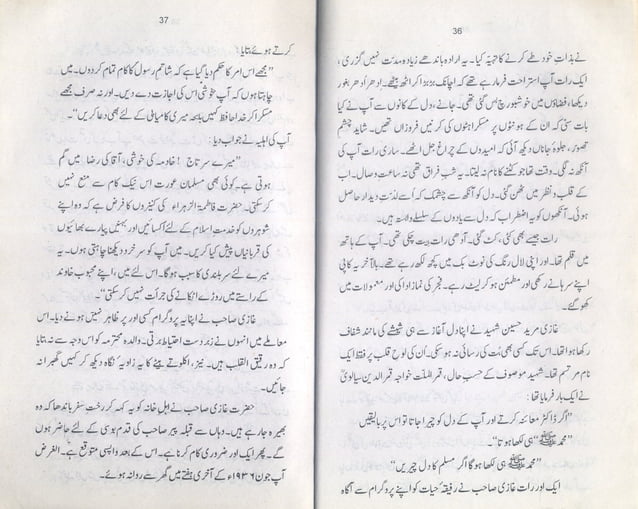 36
نے بذاتِ خود طے کرنے کا تہیّہ کیا۔ یہ ارادہ باندھے زیادہ مدت نہیں گزری،
ایک رات آپ استراحت فرما رہے تھے کہ اچانک ہڑبڑا کر اٹھ بیٹھے۔ اِدھر اُدھر بغور
دیکھا، فضاؤں میں خوشبو رچ بس گئی تھی۔ جانے، دل کے کانوں سے آپ نے کیا
بات سنی کہ ان کے ہونٹوں پر مسکراہٹوں کی کرنیں فروزاں تھیں۔ شاید چشمِ
تصور، جلوۂ جاناں دیکھ آئی کہ امیدوں کے چراغ جل اٹھے۔ ساری رات آپ کی
آنکھ نہ لگی۔ وقت تھا جو کٹنے کا نام نہ لیتا۔ یہ شبِ فراق تھی نہ ساعتِ وصال۔ اب
کے قلب و نظر میں ٹھن گئی۔ دل کو آنکھ سے چشمک کہ اُسے لذّتِ دیدار حاصل
ہوئی۔ آنکھوں کو یہ اضطراب کہ دل سے یادوں کے سلسلے وابستہ ہیں۔
رات جیسے بھی کٹی، کٹ گئی۔ آدھی رات بیت چکی تھی۔ آپ کے ہاتھ
میں قلم تھا۔ اور اپنی لال رنگ کی نوٹ بک میں کچھ لکھ رہے تھے۔ بالآخر یہ کاپی
اپنے سرہانے رکھی اور مطمئن ہو کر لیٹ رہے۔ فجر کی نماز ادا کی اور معمولات میں
کھو گئے۔
غازی مرید حسین شہید نے اپنا دل آغاز سے ہی شیشے کی مانند شفاف
رکھا ہوا تھا۔ اس تک کسی بھی بُت کی رسائی نہ ہو سکی۔ اُن کی لوحِ قلب پر فقط ایک
نام مرتسم تھا۔ شہید موصوف کے حسبِ حال، قمر الملت خواجہ قمر الدین سیالویؒ
نے ایک بار فرمایا تھا:
"اگر ڈاکٹر معائنہ کرتے اور آپ کے دل کو چیرا جاتا تو اس پر بالیقین
"محمد ﷺ" ہی لکھا ہوتا"۔
"محمد ﷺ ہی لکھا ہوگا اگر مسلم کا دل چیریں"
ایک اور رات غازی صاحب نے رفیقۂ حیات کو اپنے پروگرام سے آگاہ
37
کرتے ہوئے بتایا!
"مجھے اس امر کا حکم دیا گیا ہے کہ شاتمِ رسول کا کام تمام کردوں۔ میں
چاہتا ہوں کہ آپ خوشی اس کی اجازت دے دیں۔ اور نہ صرف مجھے
مسکرا کر خدا حافظ کہیں بلکہ میری کامیابی کے لئے بھی دعا کریں"۔
آپ کی اہلیہ نے جواب دیا:
"میرے سر تاج! خادمہ کی خوشی، آقا کی رضا میں گم
ہوتی ہے۔ کوئی بھی مسلمان عورت اس نیک کام سے منع نہیں
کر سکتی۔ حضرت فاطمۃ الزہراء کی کنیزوں کا فرض ہے کہ وہ اپنے
شوہروں کو خدمتِ اسلام کے لئے اکسائیں اور بہنیں پیارے بھائیوں
کی قربانیاں پیش کیا کریں۔ میں آپ کو سرخرو دیکھنا چاہتی ہوں۔ یہ
میرے لئے سربلندی کا سبب ہوگا۔ اس لئے میں، اپنے محبوب خاوند
کے راستے میں روڑے اٹکانے کی جرأت نہیں کر سکتی"۔
غازی صاحب نے اپنا یہ پروگرام کسی اور پر ظاہر نہیں ہونے دیا۔ اس
معاملے میں انہوں نے زبردست احتیاط برتی۔ والدہ محترمہ کو اس وجہ سے نہ بتایا
کہ وہ رقیق القلب ہیں۔ نیز، اکلوتے بیٹے کا یہ زاویۂ نگاہ دیکھ کر کہیں گھبرا نہ
جائیں۔
حضرت غازی صاحب نے اہلِ خانہ کو یہ کہہ کر رختِ سفر باندھا کہ وہ
بھیرہ جا رہے ہیں۔ وہاں سے قبلہ پیر صاحب کی قدم بوسی کے لئے حاضر ہوں
گے۔ پھر ایک اور ضروری کام کرنا ہے۔ اس کے بعد واپسی متوقع ہے۔ الغرض
آپ جون ۱۹۳۶ء کے آخری ہفتے میں گھر سے روانہ ہوئے۔